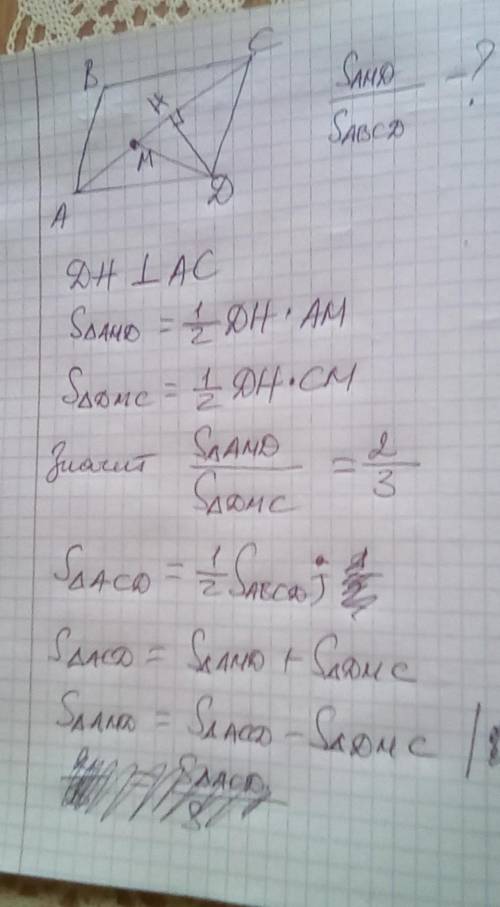 B
C
H
M
A
D
S_AMD / S_ABCD - ?
DH ⊥ AC
S_ΔAMD = 1/2 DH · AM
S_ΔDMC = 1/2 DH · CM
Значит S_ΔAMD / S_ΔDMC = 2/3
S_ΔACD = 1/2 S_ABCD ;
S_ΔACD = S_ΔAMD + S_ΔDMC
S_ΔAMD = S_ΔACD - S_ΔDMC |